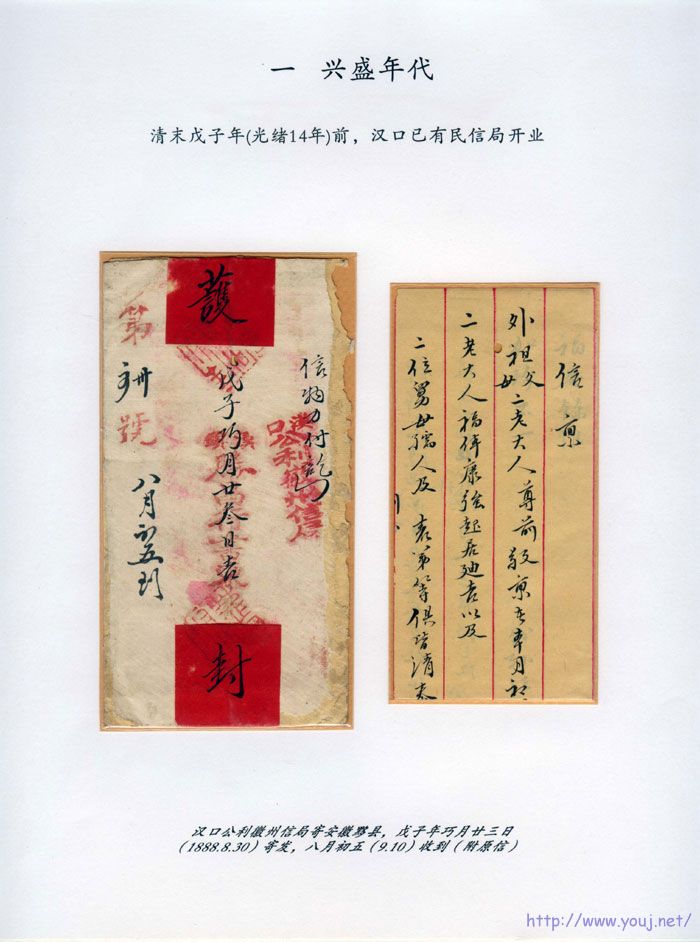 一 兴盛年代
清末戊子年(光绪14年)前，汉口已有民信局开业
護
信物力付訖
戊子巧月廿叁日吉
第
號
八月初五到
封
信稟
外祖父母二老大人尊前敬稟者
二老大人福体康強起居迪吉以及
二位舅母孺人及表弟等俱皆清泰
汉口公利徽州信局寄安徽黟县，戊子年巧月廿三日
(1888.8.30)寄发，八月初五(9.10)收到(附原信)
http://www.youj.net/